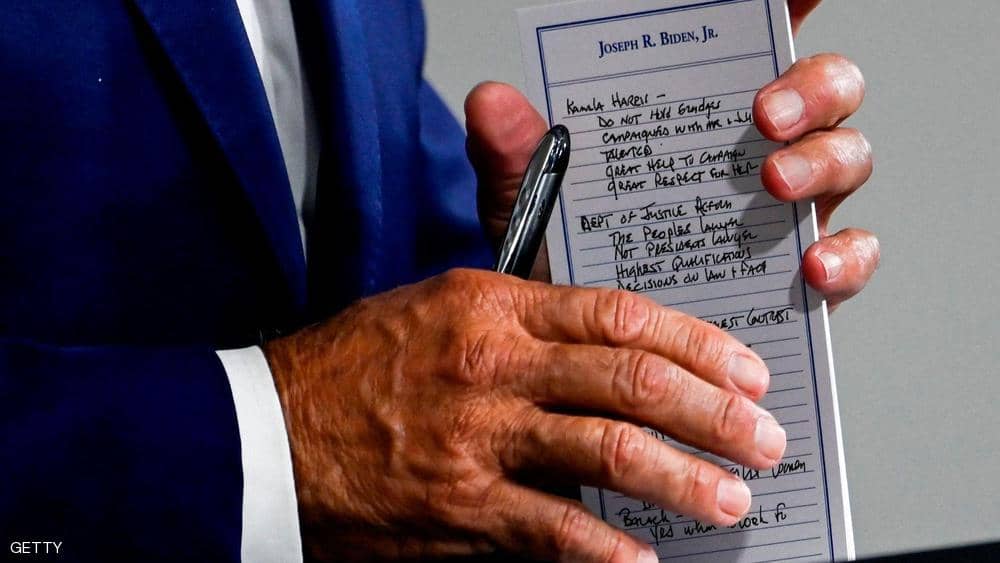 JOSEPH R. BIDEN, JR.
KAMALA HARRIS –
DO NOT HOLD GRUDGES
CAMPAIGNED WITH ME & JILL
TALENTED
GREAT HELP TO CAMPAIGN
GREAT RESPECT FOR HER
DEPT OF JUSTICE
THE PEOPLES LAWYER
NOT PRESIDENTS LAWYER
HIGHEST QUALIFICATIONS
DECISIONS ON LAW & FACT
CONTRAST
WOMEN
BARACK –
YES
GETTY